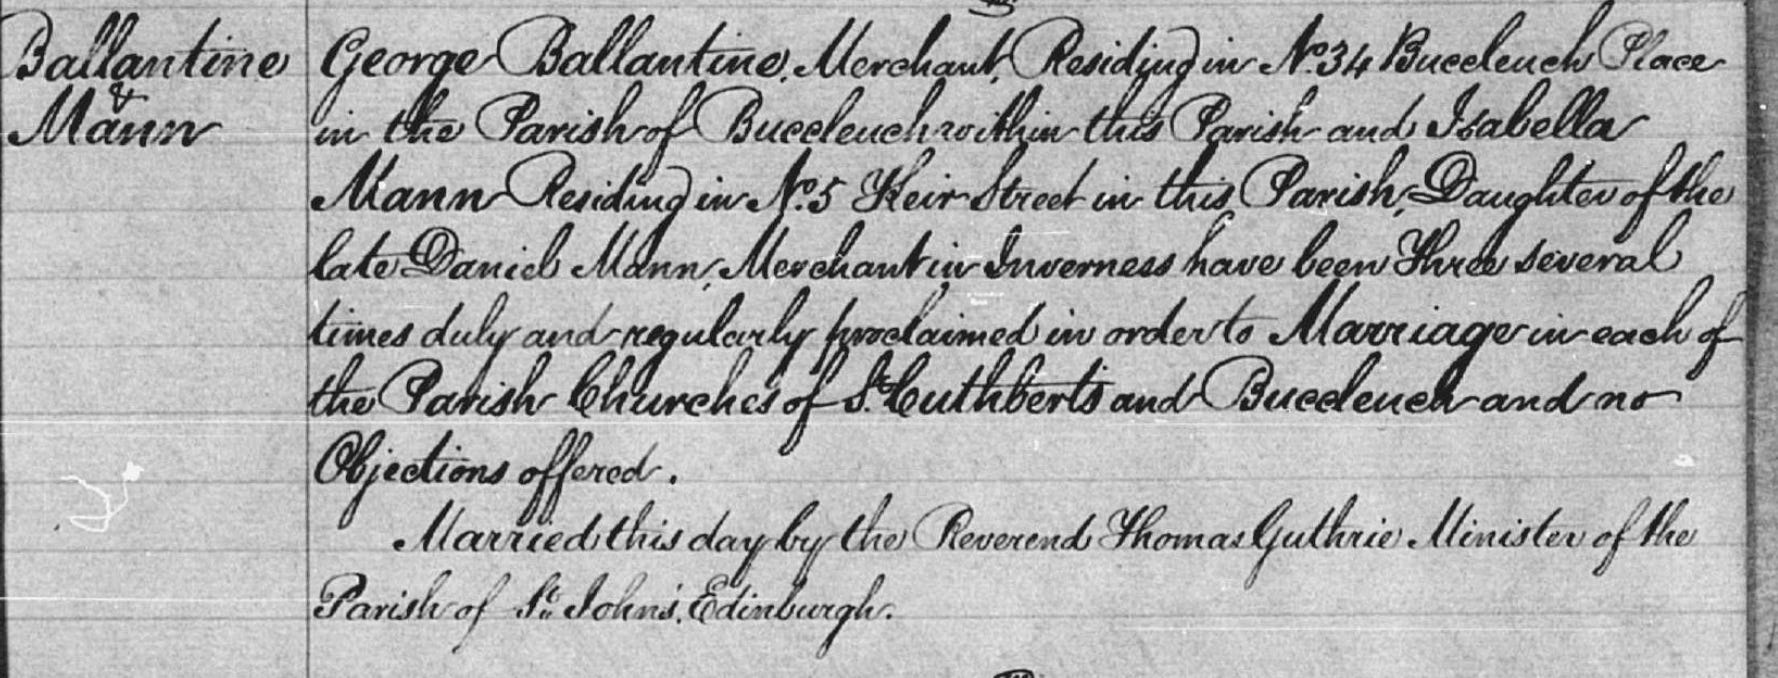 Ballantine
&
Mann
George Ballantine, Merchant, Residing in No. 34 Buccleuch Place
in the Parish of Buccleuch within this Parish and Isabella
Mann Residing in No. 5 Keir Street in this Parish, Daughter of the
late Daniel Mann, Merchant in Inverness have been Three several
times duly and regularly proclaimed in order to Marriage in each of
the Parish Churches of St. Cuthberts and Buccleuch and no
Objections offered.
Married this day by the Reverend Thomas Guthrie Minister of the
Parish of St. John's, Edinburgh.